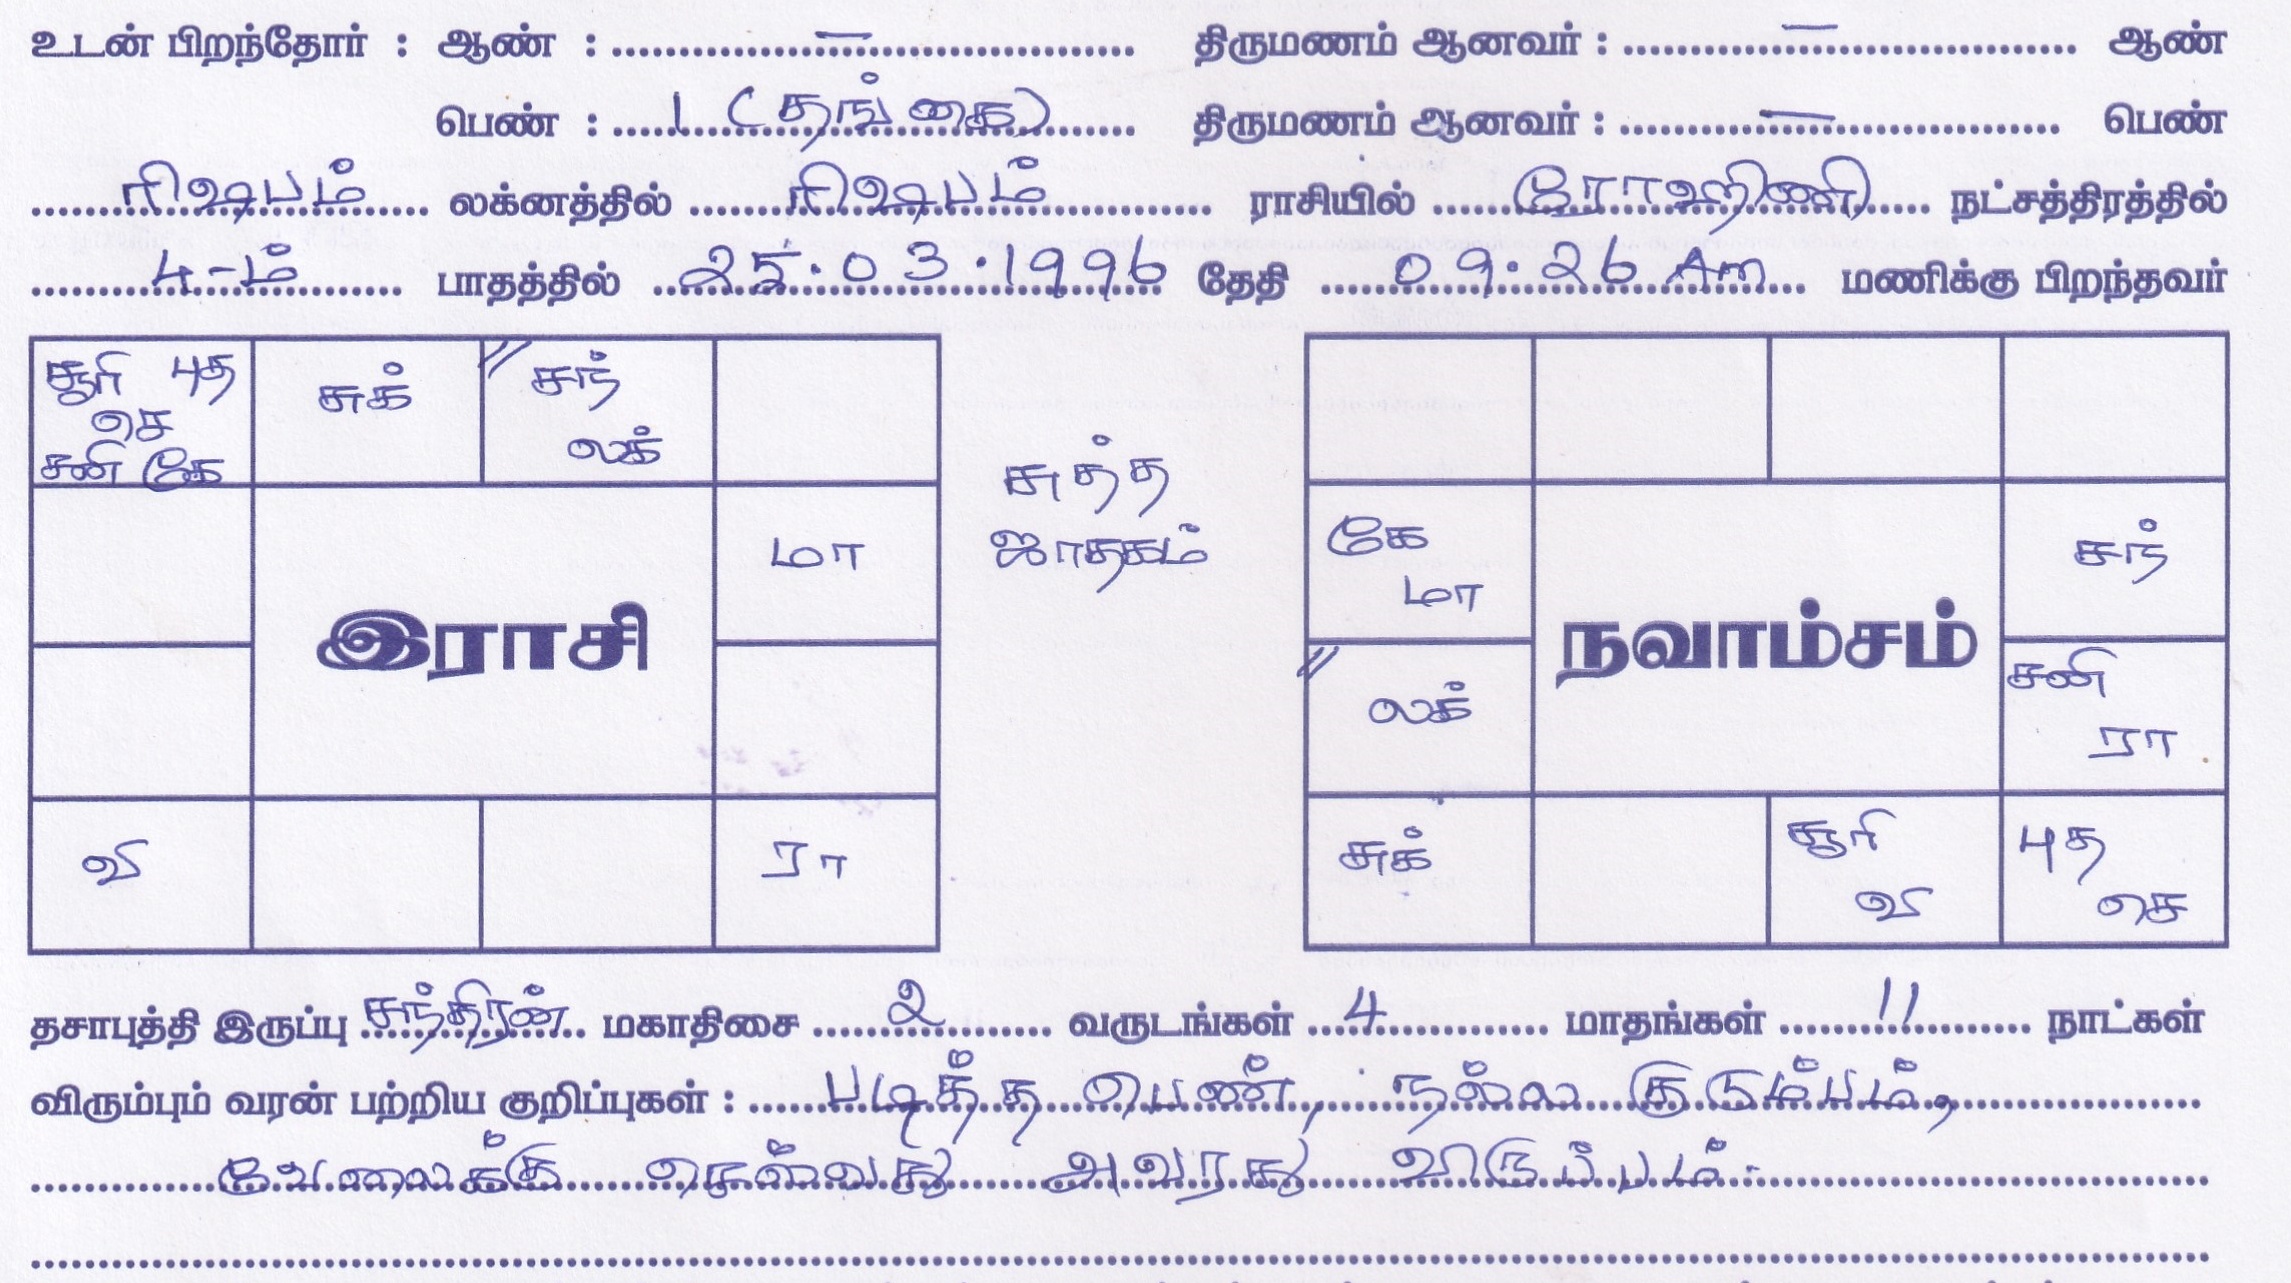 உடன் பிறந்தோர் : ஆண் : ..........—.......... திருமணம் ஆனவர் : ..........—.......... ஆண்
பெண் : .....1 (தங்கை)..... திருமணம் ஆனவர் : ..........—.......... பெண்
.....ரிஷபம்..... லக்னத்தில் .....ரிஷபம்..... ராசியில் .....ரோஹிணி..... நட்சத்திரத்தில்
.....4-ம்..... பாதத்தில் .....25.03.1996..... தேதி .....09.26 Am..... மணிக்கு பிறந்தவர்
சூரி புத
செ
சனி கே
சுக்
சந்
லக்
மா
இராசி
வி
ரா
சுத்த
ஜாதகம்
கே
மா
சந்
நவாம்சம்
லக்
சனி
ரா
சுக்
சூரி
வி
புத
செ
தசாபுத்தி இருப்பு .....சந்திரன்..... மகாதிசை .....2..... வருடங்கள் .....4..... மாதங்கள் .....11..... நாட்கள்
விரும்பும் வரன் பற்றிய குறிப்புகள் : .....படித்த பெண், நல்ல குடும்பம்,.....
.....வேலைக்கு செல்வது அவரது விருப்பம்......